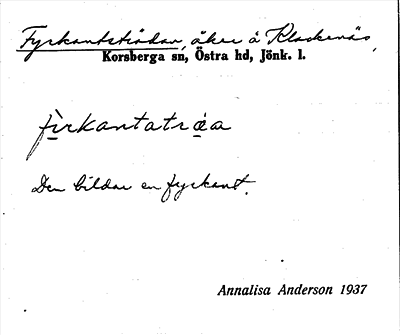 Fyrkantsträdan, åker å Klackenäs,
Korsberga sn, Östra hd, Jönk. l.
fìrkantatrá̱a
Den bildar en fyrkant.
Annalisa Anderson 1937